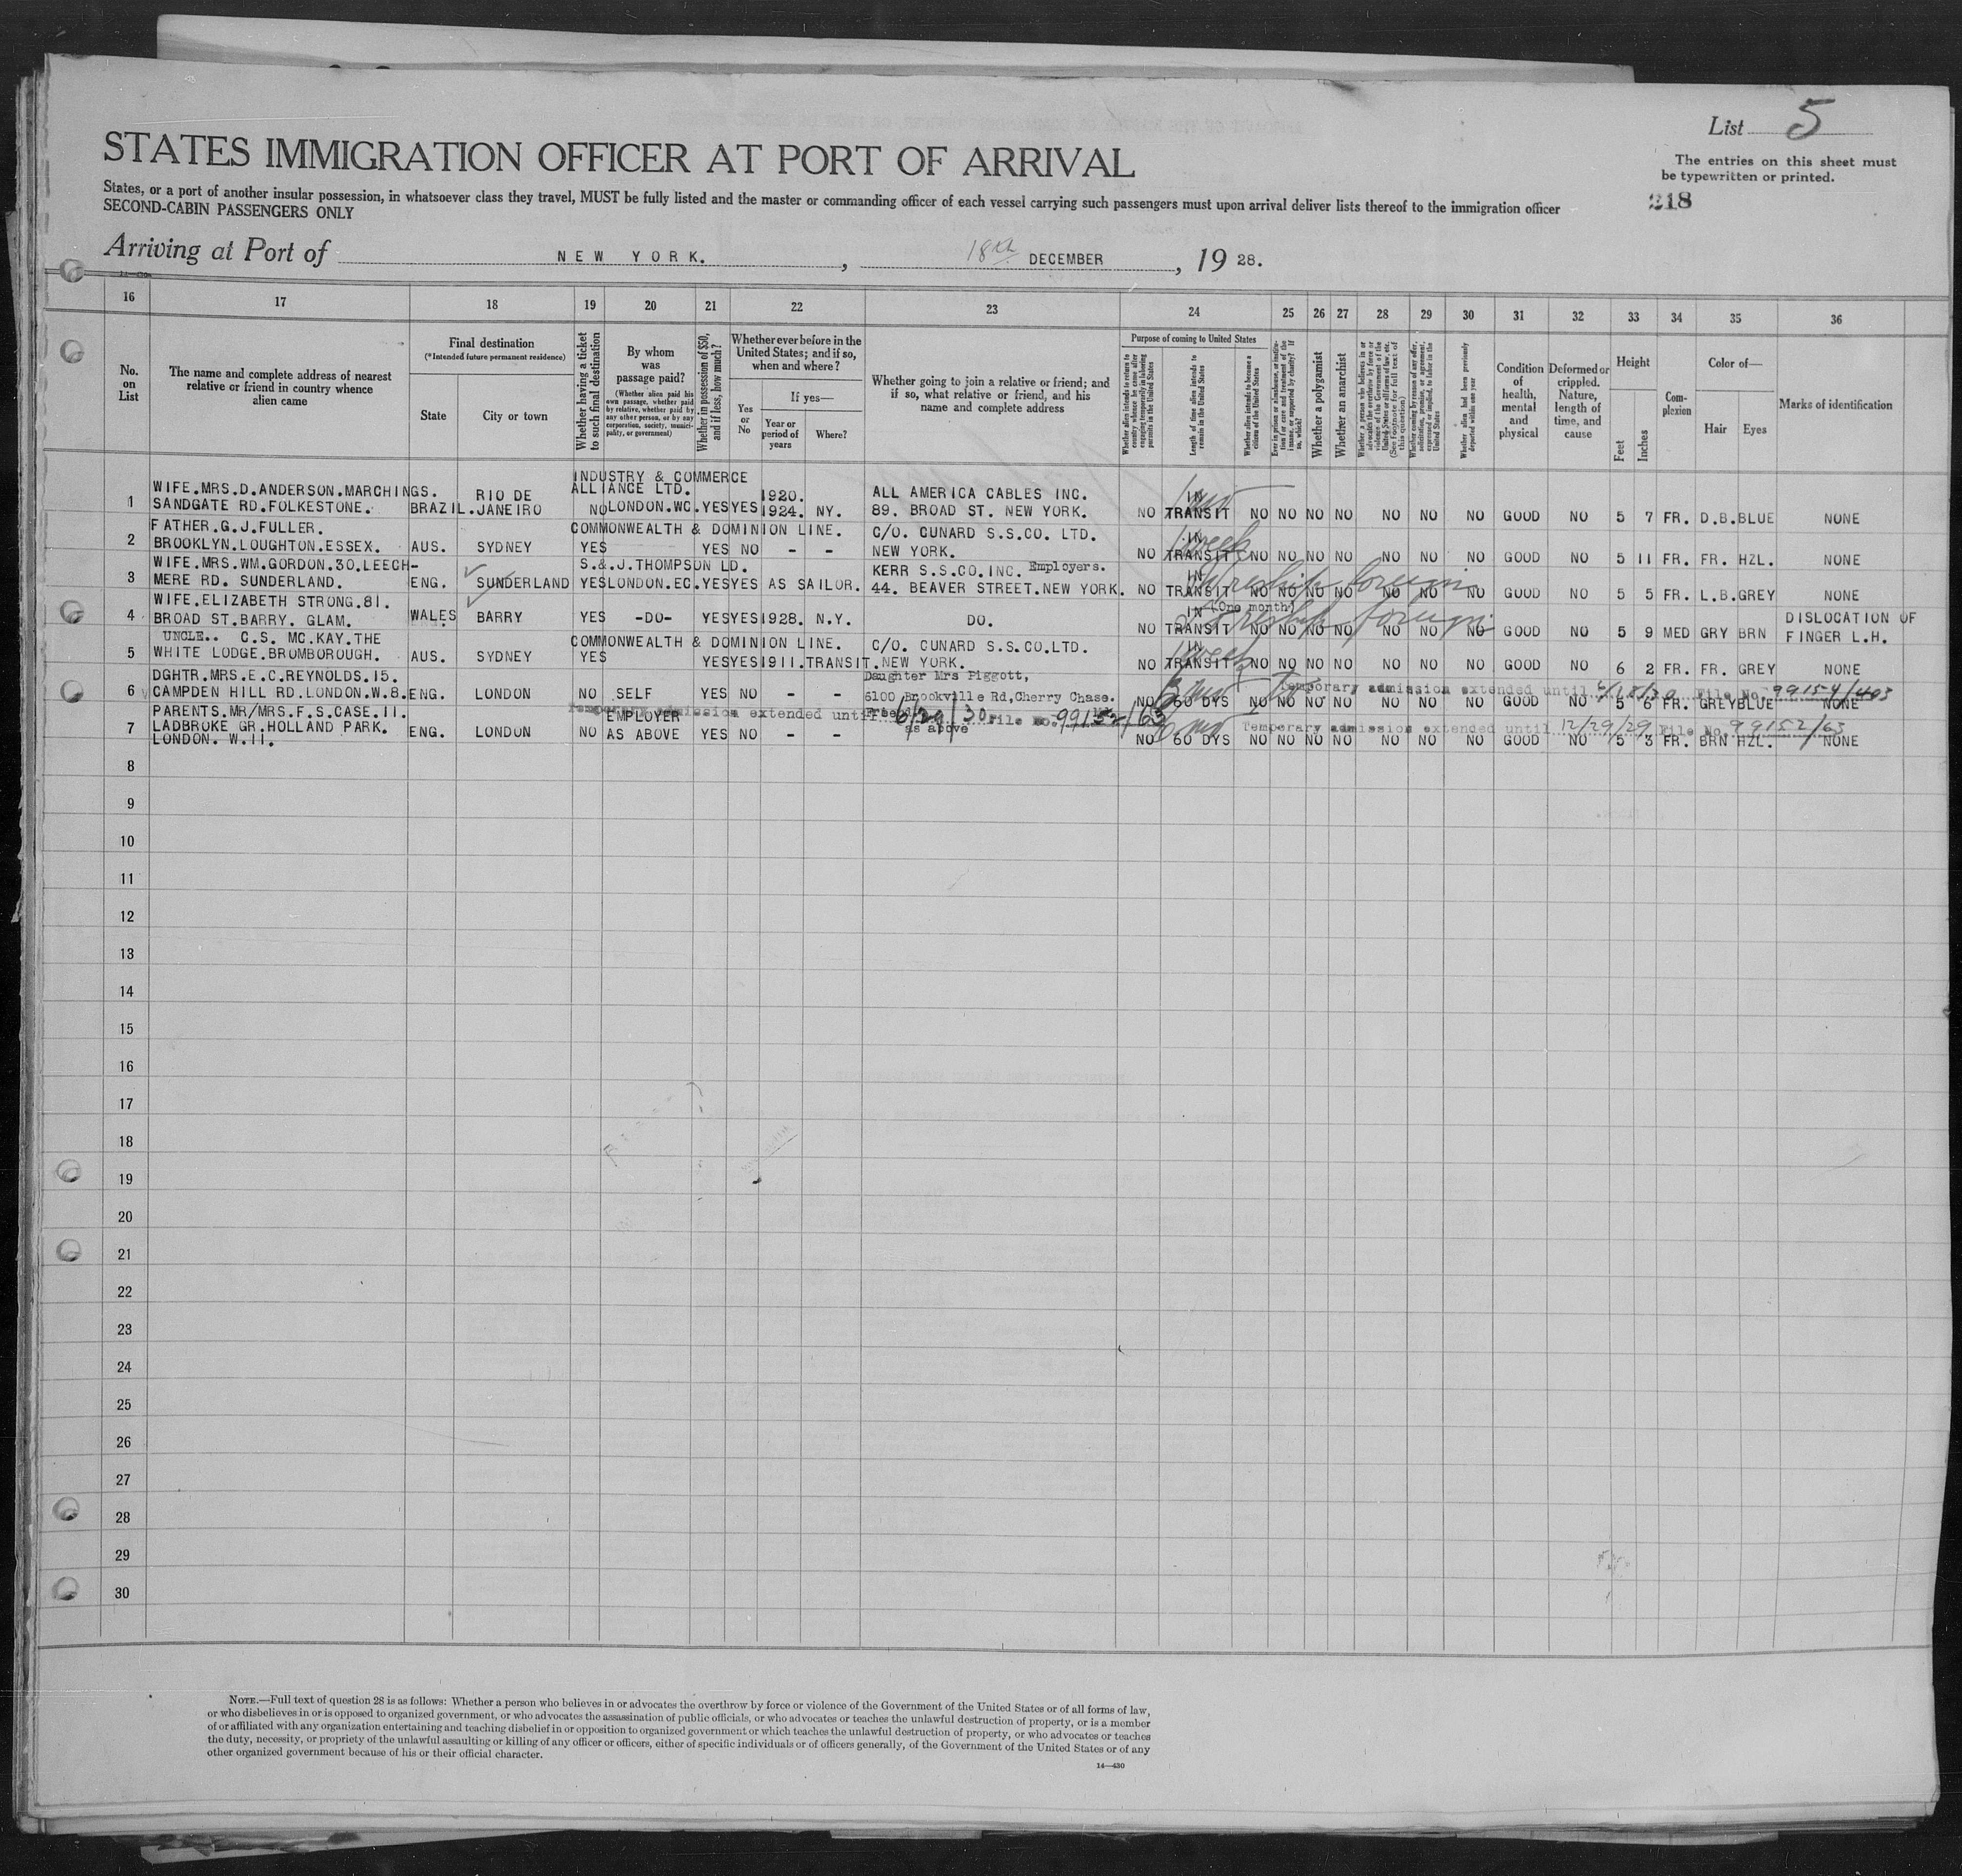 List 5
STATES IMMIGRATION OFFICER AT PORT OF ARRIVAL
The entries on this sheet must
be typewritten or printed.
States, or a port of another insular possession, in whatsoever class they travel, MUST be fully listed and the master or commanding officer of each vessel carrying such passengers must upon arrival deliver lists thereof to the immigration officer
218
SECOND-CABIN PASSENGERS ONLY
Arriving at Port of NEW YORK. , 18th DECEMBER , 19 28.
16 17 18 19 20 21 22 23 24 25 26 27 28 29 30 31 32 33 34 35 36
No. on List
The name and complete address of nearest relative or friend in country whence alien came
Final destination
(*Intended future permanent residence)
State
City or town
Whether having a ticket to such final destination
By whom was passage paid?
(Whether alien paid his own passage, whether paid by relative, whether paid by any other person, or by any corporation, society, municipality, or government)
Whether in possession of $50, and if less, how much?
Whether ever before in the United States; and if so, when and where?
Yes or No
If yes—
Year or period of years
Where?
Whether going to join a relative or friend; and if so, what relative or friend, and his name and complete address
Purpose of coming to United States
Whether alien intends to return to country whence he came after engaging temporarily in laboring pursuits in the United States
Length of time alien intends to remain in the United States
Whether alien intends to become a citizen of the United States
Ever in prison or almshouse, or institution for care and treatment of the insane, or supported by charity? If so, which?
Whether a polygamist
Whether an anarchist
Whether a person who believes in or advocates the overthrow by force or violence of the Government of the United States or all forms of law, etc. (See Footnote for full text of this question)
Whether coming by reason of any offer, solicitation, promise, or agreement, expressed or implied, to labor in the United States
Whether alien had been previously deported within one year
Condition of health, mental and physical
Deformed or crippled. Nature, length of time, and cause
Height
Feet
Inches
Complexion
Color of—
Hair
Eyes
Marks of identification
INDUSTRY & COMMERCE
WIFE.MRS.D.ANDERSON.MARCHINGS. RIO DE ALLIANCE LTD. 1920. ALL AMERICA CABLES INC. IN
1 SANDGATE RD.FOLKESTONE. BRAZIL.JANEIRO NO LONDON.WC. YES YES 1924. NY. 89. BROAD ST. NEW YORK. NO TRANSIT NO NO NO NO NO NO NO GOOD NO 5 7 FR. D.B. BLUE NONE
FATHER.G.J.FULLER. COMMONWEALTH & DOMINION LINE. C/O. CUNARD S.S.CO. LTD. IN 1 week
2 BROOKLYN.LOUGHTON.ESSEX. AUS. SYDNEY YES YES NO - - NEW YORK. NO TRANSIT NO NO NO NO NO NO NO GOOD NO 5 11 FR. FR. HZL. NONE
WIFE.MRS.WM.GORDON.30.LEECH- S.&.J.THOMPSON LD. KERR S.S.CO.INC. Employers. IN reship foreign
3 MERE RD. SUNDERLAND. ENG. SUNDERLAND YES LONDON.EC. YES YES AS SAILOR. 44. BEAVER STREET.NEW YORK. NO TRANSIT NO NO NO NO NO NO NO GOOD NO 5 5 FR. L.B. GREY NONE
WIFE.ELIZABETH STRONG.81. IN (One month) reship foreign DISLOCATION OF
4 BROAD ST.BARRY. GLAM. WALES BARRY YES -DO- YES YES 1928. N.Y. DO. NO TRANSIT NO NO NO NO NO NO NO GOOD NO 5 9 MED GRY BRN FINGER L.H.
UNCLE.. C.S. MC.KAY.THE COMMONWEALTH & DOMINION LINE. C/O. CUNARD S.S.CO.LTD. IN 1 week
5 WHITE LODGE.BROMBOROUGH. AUS. SYDNEY YES YES YES 1911. TRANSIT. NEW YORK. NO TRANSIT NO NO NO NO NO NO NO GOOD NO 6 2 FR. FR. GREY NONE
DGHTR.MRS.E.C.REYNOLDS.15. Daughter Mrs Piggott,
6 CAMPDEN HILL RD.LONDON.W.8. ENG. LONDON NO SELF YES NO - - 6100 Brookville Rd,Cherry Chase. NO 60 DYS NO NO NO NO NO NO NO GOOD NO 5 6 FR. GREY BLUE NONE
Temporary admission extended until 6/18/30 File No. 99154/403
Temporary admission extended until 6/29/30 File No. 99152/63
PARENTS.MR/MRS.F.S.CASE.11. EMPLOYER
7 LADBROKE GR.HOLLAND PARK. ENG. LONDON NO AS ABOVE YES NO - - as above NO 60 DYS NO NO NO NO NO NO NO GOOD NO 5 3 FR. BRN HZL. NONE
LONDON. W.11.
Temporary admission extended until 12/29/29 File No. 99152/63
8
9
10
11
12
13
14
15
16
17
18
19
20
21
22
23
24
25
26
27
28
29
30
NOTE.—Full text of question 28 is as follows: Whether a person who believes in or advocates the overthrow by force or violence of the Government of the United States or of all forms of law,
or who disbelieves in or is opposed to organized government, or who advocates the assassination of public officials, or who advocates or teaches the unlawful destruction of property, or is a member
of or affiliated with any organization entertaining and teaching disbelief in or opposition to organized government or which teaches the unlawful destruction of property, or who advocates or teaches
the duty, necessity, or propriety of the unlawful assaulting or killing of any officer or officers, either of specific individuals or of officers generally, of the Government of the United States or of any
other organized government because of his or their official character.
14—430